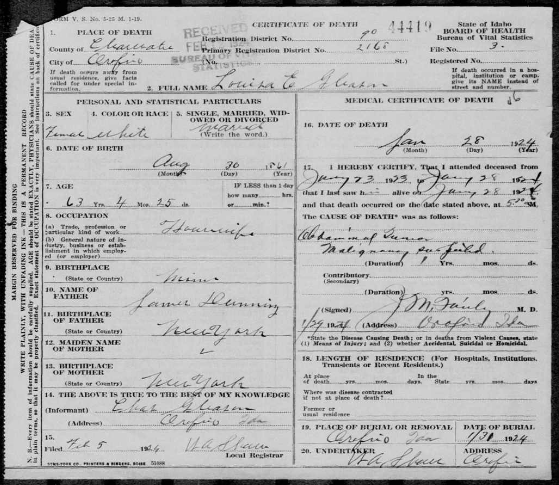 FORM V. S. No. 5-12 M. 1-19.
CERTIFICATE OF DEATH
44419
State of Idaho
BOARD OF HEALTH
Bureau of Vital Statistics
1. PLACE OF DEATH
RECEIVED
FEB 1924
BUREAU OF VITAL STATISTICS
Registration District No. 90
County of
Primary Registration District No. 2168
File No. 3.
City of Orofino
(No. St.)
Registered No.
If death occurs away from usual residence, give facts called for under special information.
If death occurred in a hospital, institution or camp, give its NAME instead of street and number.
2. FULL NAME Louisa E Gleason
PERSONAL AND STATISTICAL PARTICULARS
3. SEX
4. COLOR OR RACE
5. SINGLE, MARRIED, WIDOWED OR DIVORCED
(Write the word.)
Female White Married
6. DATE OF BIRTH
Aug 30
(Month) (Day) (Year)
7. AGE
IF LESS than 1 day
how many hrs.
63 Yrs. 4 Mos. 25 ds.
or min.?
8. OCCUPATION
(a) Trade, profession or particular kind of work
Housewife
(b) General nature of industry, business or establishment in which employed (or employer)
9. BIRTHPLACE
(State or Country)
10. NAME OF FATHER
James Dunning
11. BIRTHPLACE OF FATHER
(State or Country)
New York
12. MAIDEN NAME OF MOTHER
13. BIRTHPLACE OF MOTHER
(State or Country)
New York
14. THE ABOVE IS TRUE TO THE BEST OF MY KNOWLEDGE
(Informant) Gleason
(Address) Orofino Ida
15.
Filed Feb 5 1924
Local Registrar
MEDICAL CERTIFICATE OF DEATH
16. DATE OF DEATH
Jan 28 1924
(Month) (Day) (Year)
17. I HEREBY CERTIFY, That I attended deceased from
that I last saw h alive on Jany 28 1924
and that death occurred on the date stated above, at m.
The CAUSE OF DEATH* was as follows:
Abdominal Tumor
Malignancy suspected
(Duration) yrs. mos. ds.
Contributory
(Secondary)
(Duration) yrs. mos. ds.
(Signed) M. D.
1/29 1924 (Address) Orofino Ida
*State the Disease Causing Death; or in deaths from Violent Causes, state (1) Means of Injury; and (2) whether Accidental, Suicidal or Homicidal.
18. LENGTH OF RESIDENCE (For Hospitals, Institutions, Transients or Recent Residents.)
At place of death yrs. mos. days. In the State yrs. mos. days
Where was disease contracted if not at place of death?
Former or usual residence
19. PLACE OF BURIAL OR REMOVAL
DATE OF BURIAL
Orofino Ida
1924
20. UNDERTAKER
ADDRESS
MARGIN RESERVED FOR BINDING
WRITE PLAINLY, WITH UNFADING INK—THIS IS A PERMANENT RECORD